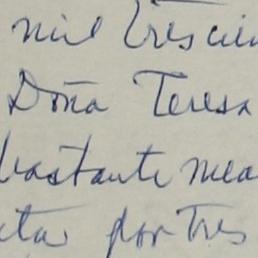 mil trescien
Doña Teresa
bastante mea
cta por tres